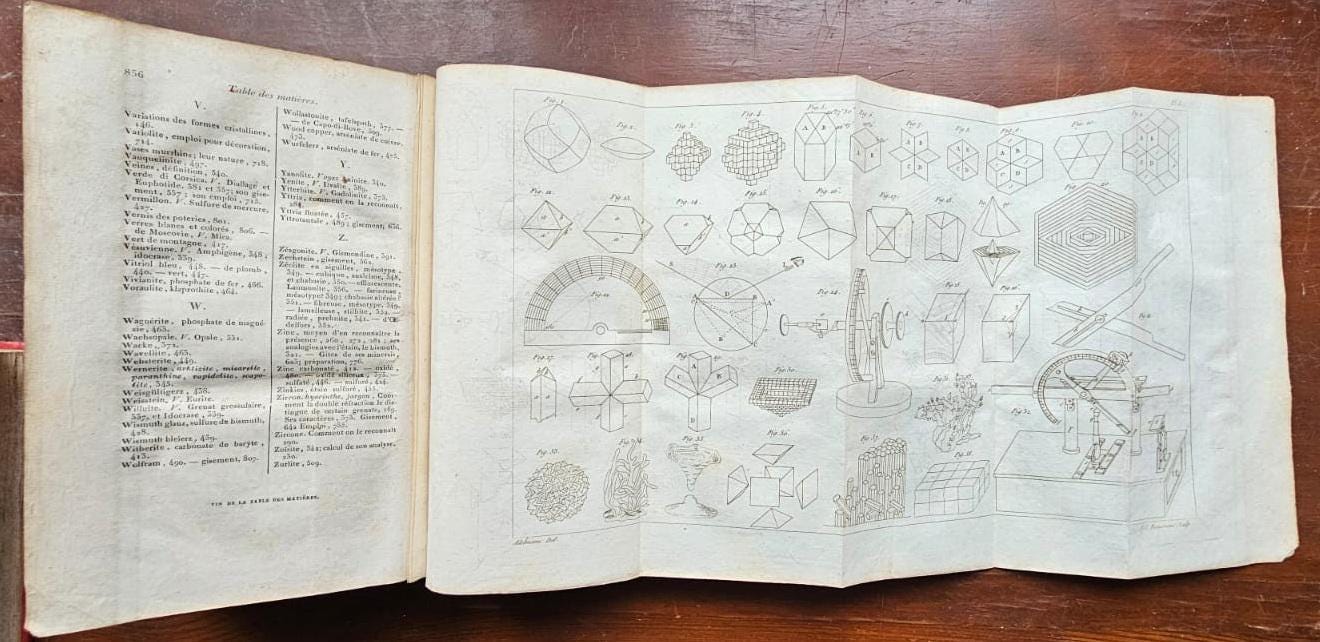 856
Table des matières.
V.
Variations des formes cristallines,
146.
Variolite, emploi pour décoration,
714.
Vases murrhins; leur nature, 718.
Vauquelinite, 497.
Veines, définition, 540.
Verde di Corsica. V. Diallage et
Euphotide. 381 et 557; son gise-
ment, 557; son emploi, 713.
Vermillon. V. Sulfure de mercure,
427.
Vernis des poteries, 801.
Verres blancs et colorés, 806. —
de Moscovie, V. Mica.
Vert de montagne, 417.
Vésuvienne. V. Amphigène, 348;
idocrase, 339.
Vitriol bleu, 448. — de plomb,
440. — vert, 447.
Vivianite, phosphate de fer, 466.
Voraulite, klaprothite, 464.
W.
Wagnérite, phosphate de magné-
sie, 463.
Wachsopale. V. Opale, 331.
Wacke, 572.
Wavellite, 463.
Websterite, 449.
Wernerite, arktizite, micarelle,
paranthine, rapidolite, scapo-
lite, 345.
Weisgültigerz, 438.
Weisstein, V. Eurite.
Willuite. V. Grenat grossulaire,
337, et Idocrase, 339.
Wismuth glanz, sulfure de bismuth,
428.
Wismuth bleierz, 439.
Witherite, carbonate de baryte,
413.
Wolfram, 490. — gisement, 807.
Wollastonite, tafelspath, 377. —
— de Capo-di-Bove, 509.
Wood copper, arséniate de cuivre,
473.
Wurfelerz, arséniate de fer, 475.
Y.
Yanolite. Voyez Axinite, 340.
Yenite, V. Ilvaïte, 389.
Ytterbite. V. Gadolinite, 375.
Yttria, comment on la reconnaît,
281.
Yttria fluatée, 457.
Yttrotantale, 489; gisement, 656.
Z.
Zéagonite. V. Gismondine, 391.
Zechstein, gisement, 562.
Zéolite en aiguilles, mésotype,
349. — cubique, analcime, 348,
et chabasie, 350. — efflorescente,
Laumonite, 356. — farineuse,
mésotype? 349; chabasie altérée?
351. — fibreuse, mésotype, 349.
— lamelleuse, stilbite, 352. —
radiée, prehnite, 341. — d'OEdelfors, 352.
Zinc, moyen d'en reconnaître la
présence, 260, 272, 281; ses
analogies avec l'étain, le bismuth,
321. — Gîtes de ses minerais,
625; préparation, 776.
Zinc carbonaté, 412. — oxidé,
480. — oxidé siliceux, 375. —
sulfaté, 446. — sulfuré, 424.
Zinkies, étain sulfuré, 433.
Zircon, hyacinthe, jargon. Com-
ment la double réfraction le dis-
tingue de certain grenats, 169.
Ses caractères, 373. Gisement,
642. Emploi, 788.
Zircone. Comment on le reconnaît
290.
Zoïsite, 342; calcul de son analyse,
230.
Zurlite, 509.
FIN DE LA TABLE DES MATIÈRES.
Fig. 1
Fig. 2.
Fig. 3.
Fig. 4.
Fig. 5.
Fig. 7.
Fig. 8.
Fig. 9.
Fig. 10.
Fig. 12.
Fig. 13.
Fig. 14.
Fig. 15.
Fig. 16.
Fig. 17.
Fig. 18.
Fig. 20.
Fig. 22.
Fig. 23.
Fig. 24.
Fig. 25.
Fig. 26.
Fig. 27
Fig. 30.
Fig. 31.
Fig. 32
Fig. 33.
Fig. 34.
Fig. 35.
Fig. 36.
Fig. 37.
Fig. 38.